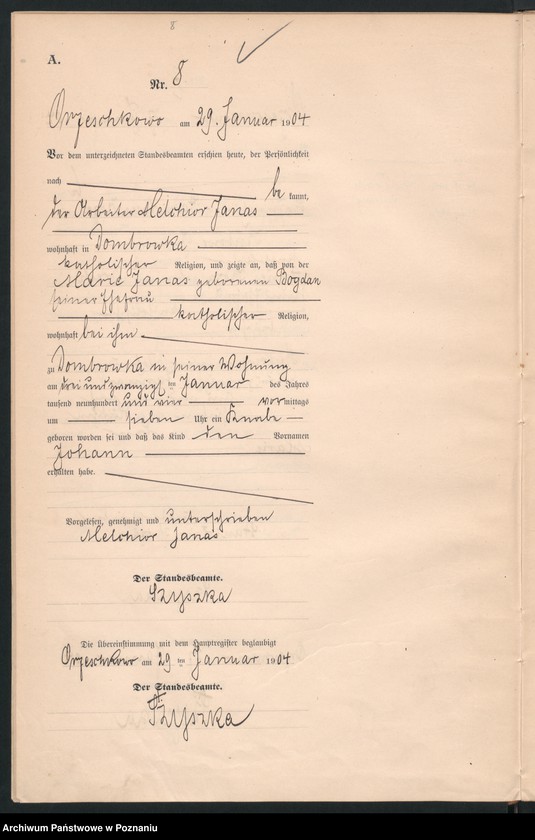 8
A.
Nr. 8
Orzeschkowo am 29. Januar 1904
Vor dem unterzeichneten Standesbeamten erschien heute, der Persönlichkeit
nach be kannt,
der Arbeiter Melchior Janas
wohnhaft in Dombrowka
katholischer Religion, und zeigte an, daß von der
Marie Janas geborenen Bogdan
seiner Ehefrau
katholischer Religion,
wohnhaft bei ihm
zu Dombrowka in seiner Wohnung
am drei und zwanzigsten Januar des Jahres
tausend neunhundert und vier vor mittags
um sieben Uhr ein Knabe
geboren worden sei und daß das Kind den Vornamen
Johann
erhalten habe.
Vorgelesen, genehmigt und unterschrieben
Melchior Janas
Der Standesbeamte.
Szyszka
Die Übereinstimmung mit dem Hauptregister beglaubigt
Orzeschkowo am 29 ten Januar 1904
Der Standesbeamte.
Szyszka
Archiwum Państwowe w Poznaniu